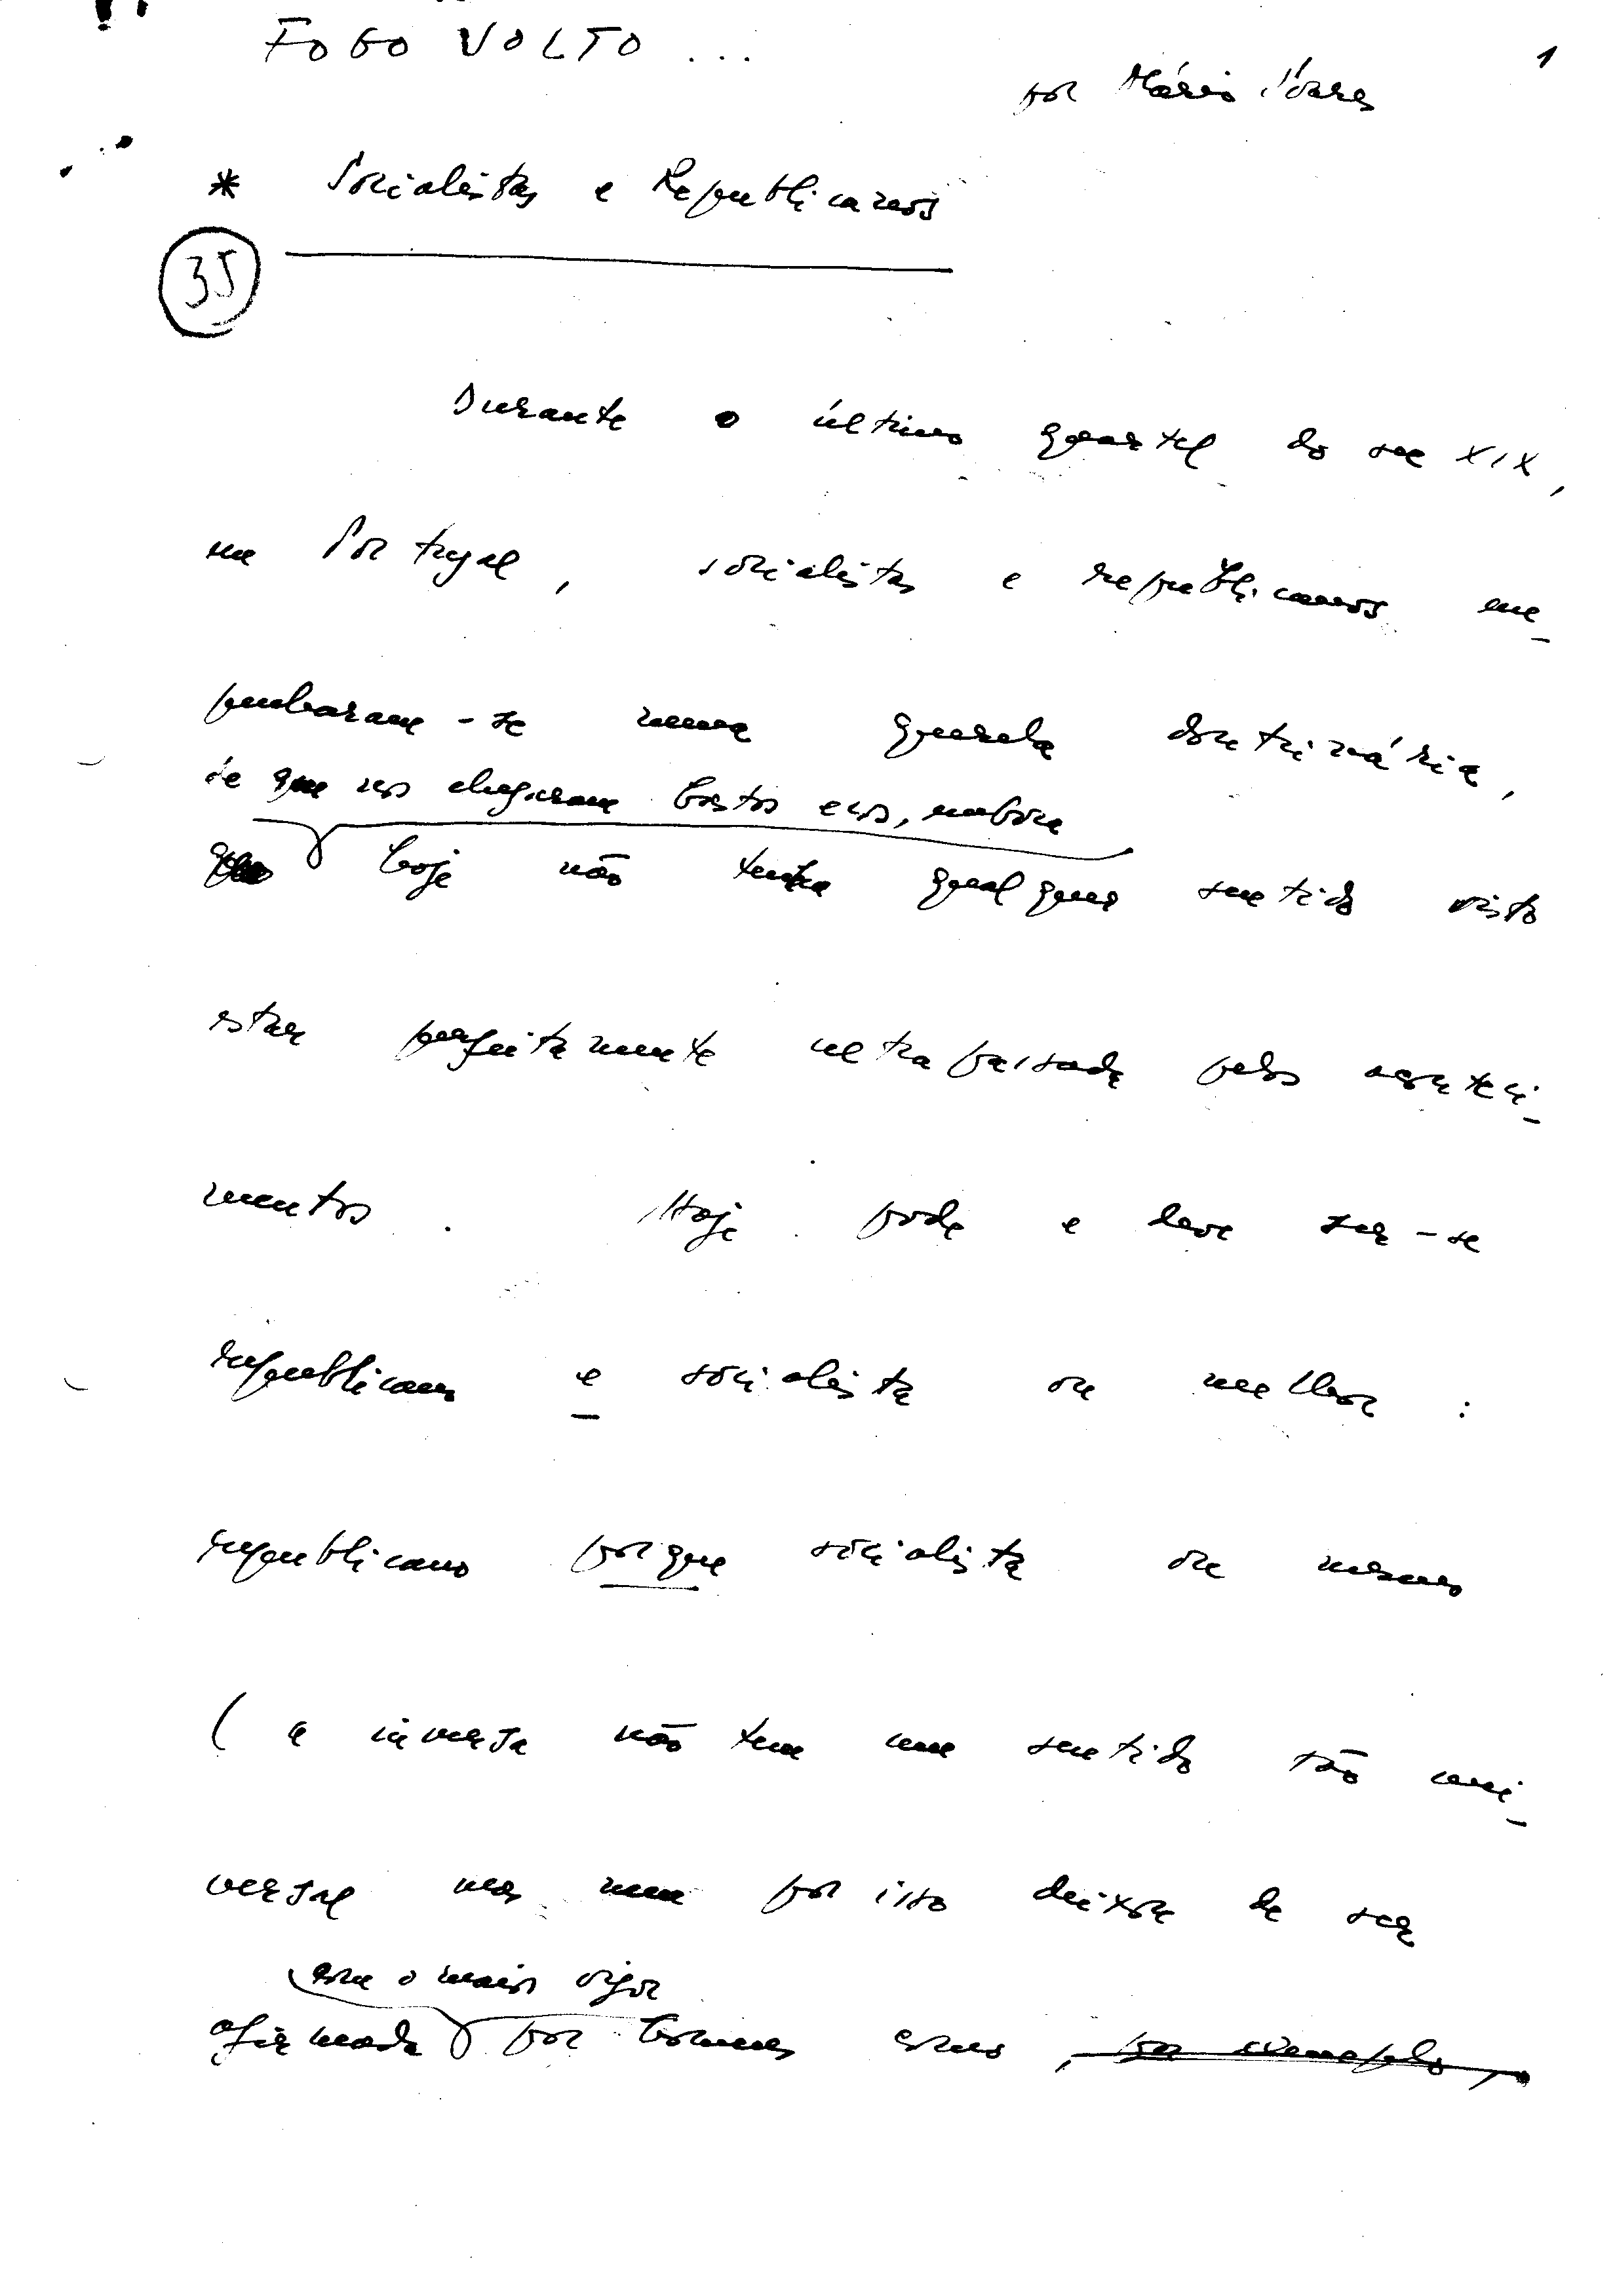 FOGO VOLTO...
1
por Mário Soares
* Socialistas e Republicanos
35
Durante o último quartel do sec XIX,
em Portugal, socialistas e republicanos em-
penharam-se numa querela doutrinária,
de que nos chegaram bastos ecos, embora
hoje não tenha qualquer sentido visto
estar perfeitamente ultrapassada pelos aconteci-
mentos. Hoje pode e deve ser-se
republicano e socialista ou melhor:
republicano porque socialista ou mesmo
(a inversa não tem um sentido tão uni-
versal mas nem por isso deixou de ser
com o maior vigor
afirmada por homens como, por exemplo,